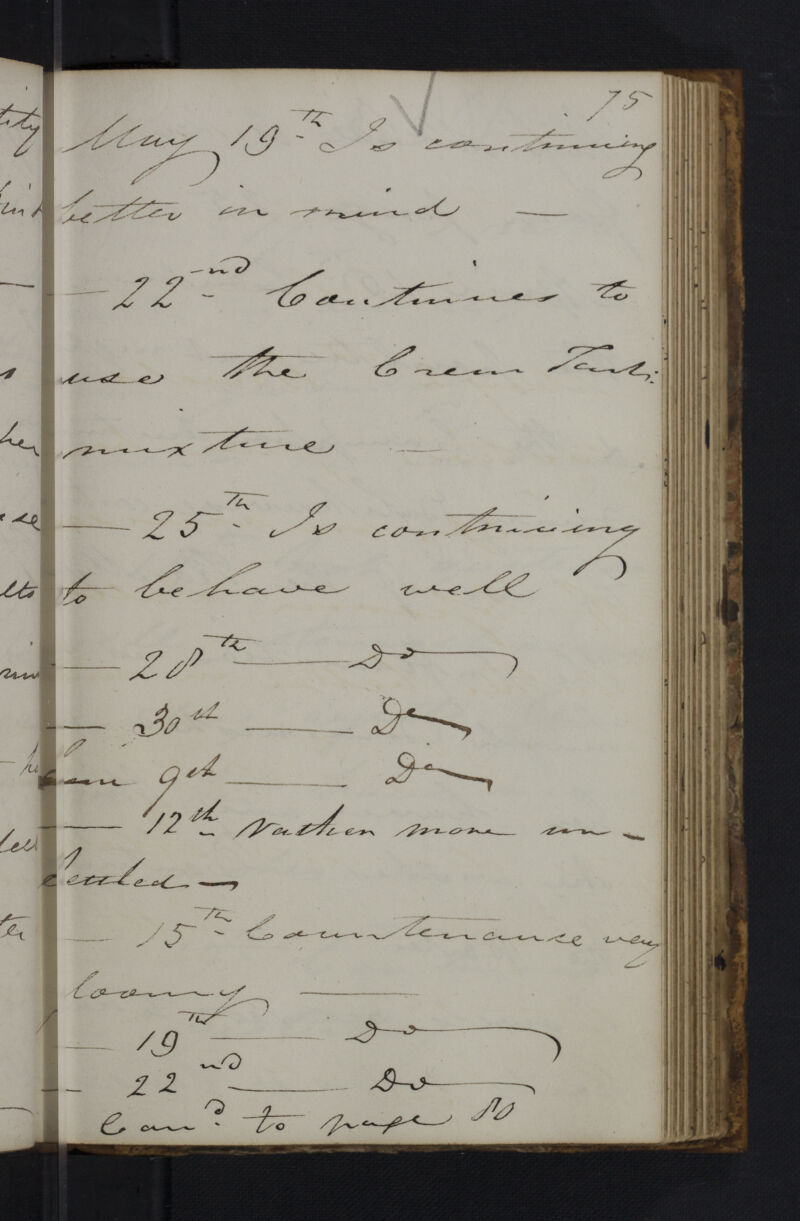 75
May 19th Is continuing
better in mind —
— 22nd Continues to
use the Crem Tart:
mixture —
— 25th Is continuing
to behave well
— 28th — Do
— 30th — Do
June 9th — Do
— 12th rather more un-
settled —
— 15th Countenance very
gloomy —
— 19th — Do
— 22nd — Do
Card. to page 80